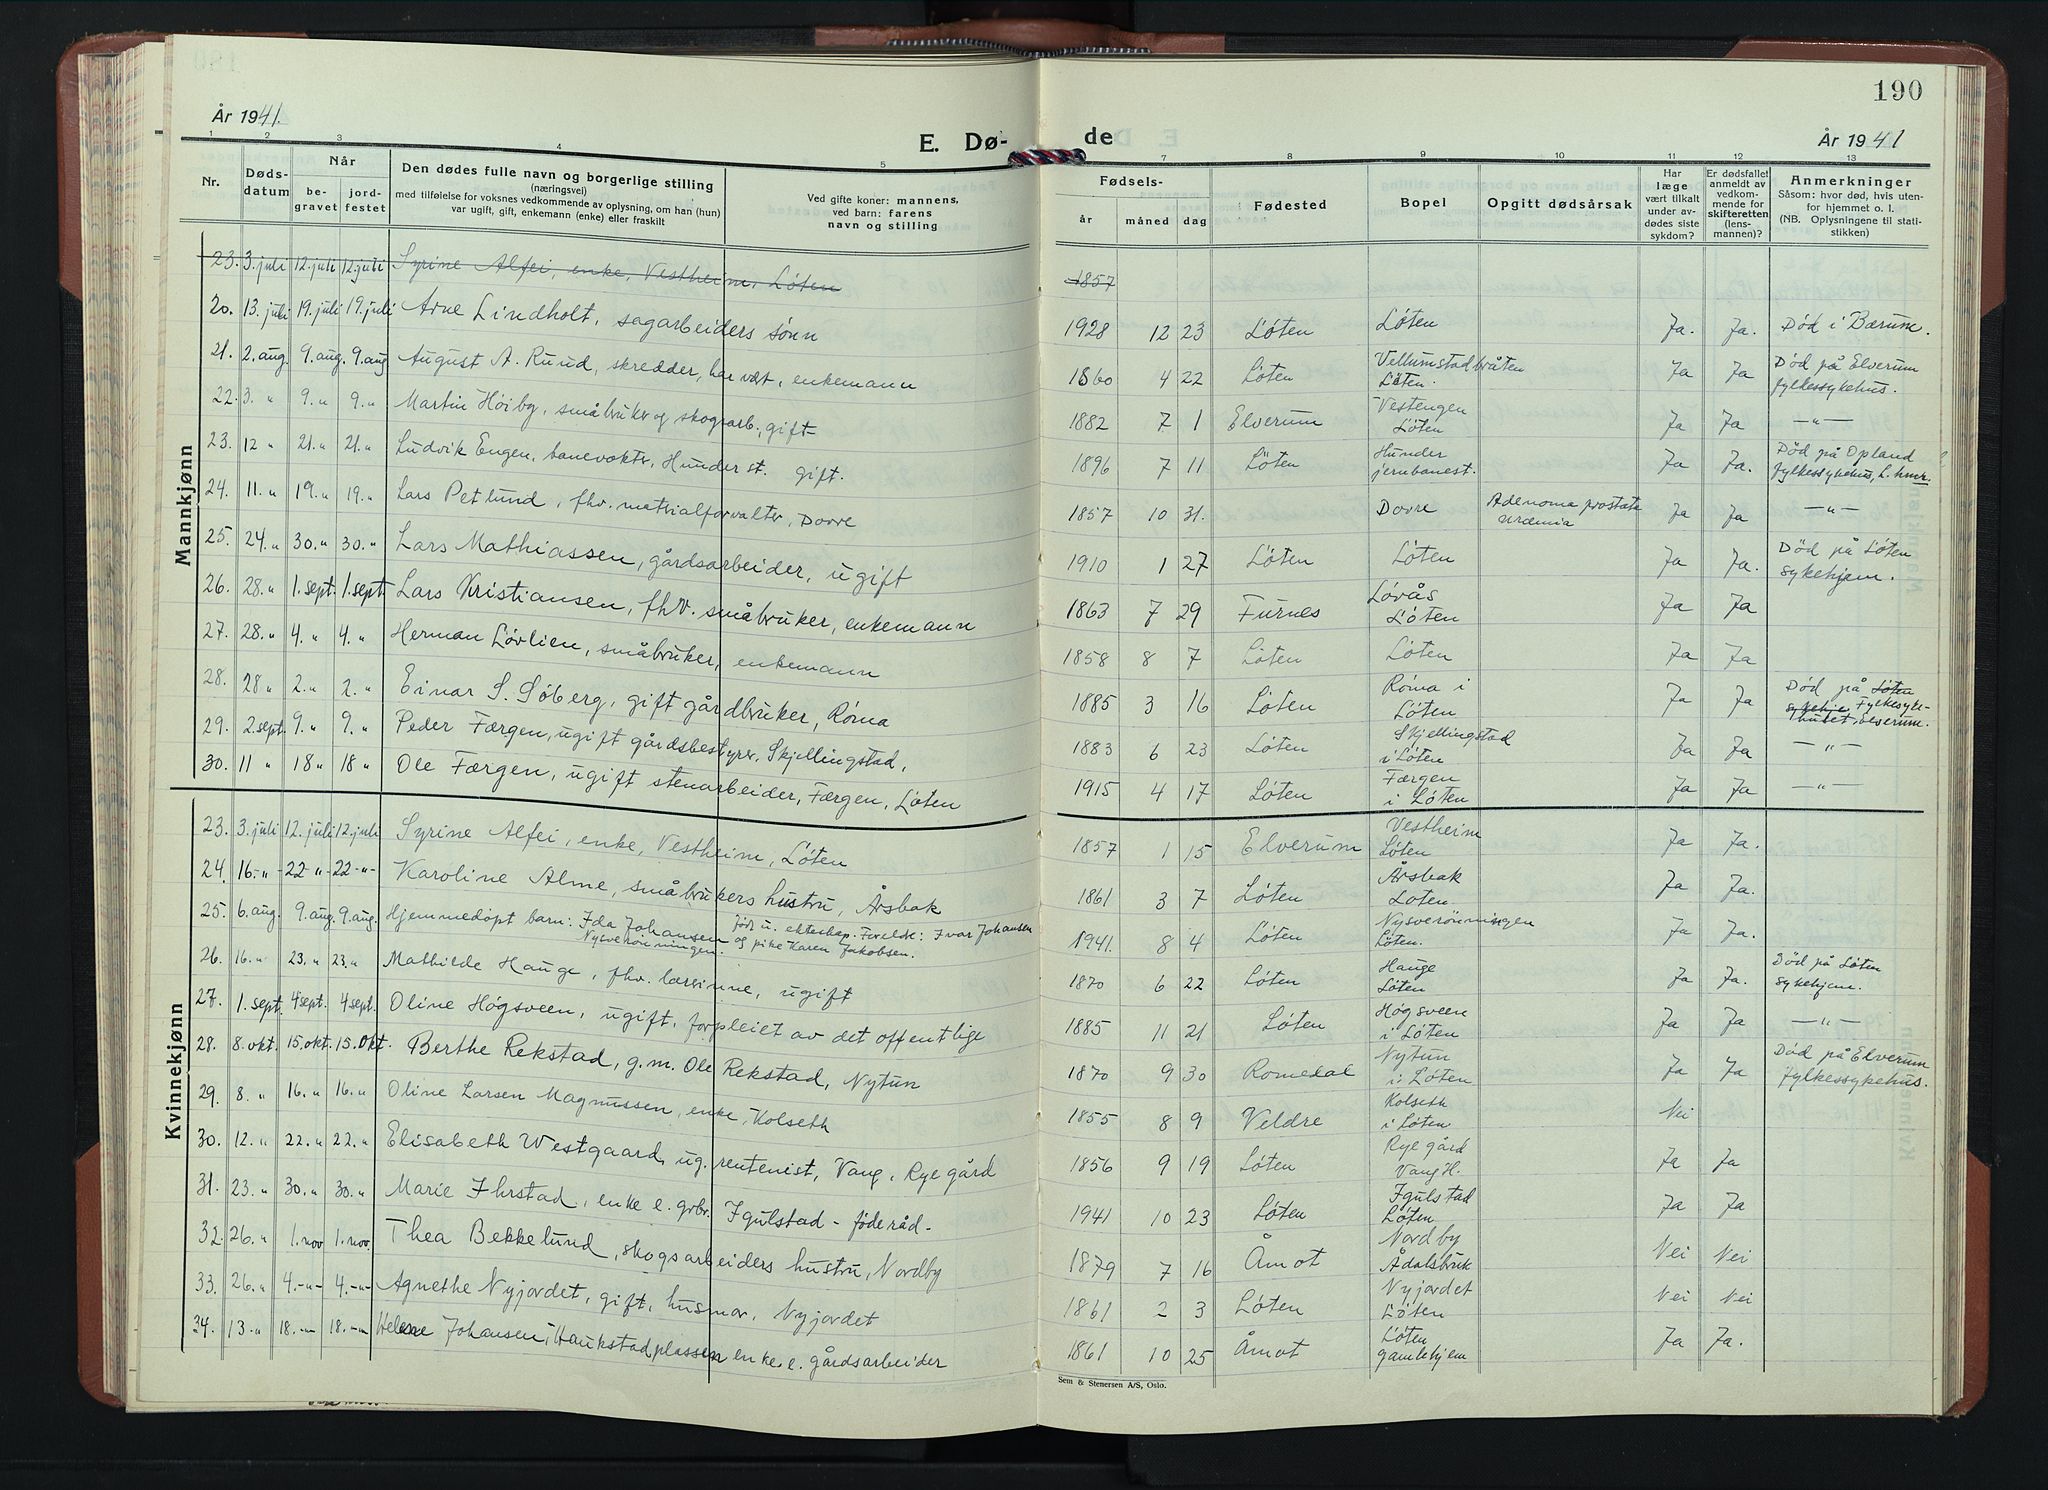 190
År 1941.
E. Dø-
de
År 1941
1 2 3 4 5 7 8 9 10 11 12 13
Nr.
Døds-
datum
Når
be-
gravet
jord-
festet
Den dødes fulle navn og borgerlige stilling
(næringsvei)
med tilføielse for voksnes vedkommende av oplysning, om han (hun)
var ugift, gift, enkemann (enke) eller fraskilt
Ved gifte koner: mannens,
ved barn: farens
navn og stilling
Fødsels-
år måned dag
Fødested
Bopel
Opgitt dødsårsak
Har
læge
vært tilkalt
under av-
dødes siste
sykdom?
Er dødsfallet
anmeldt av
vedkom-
mende for
skifteretten
(lens-
mannen)?
Anmerkninger
Såsom: hvor død, hvis uten-
for hjemmet o. l.
(NB. Oplysningene til stati-
stikken)
Mannkjønn
23. 3. juli 12. juli 12. juli Syrine Alfei, enke, Vestheim, Løten 1857
20. 13. juli 19. juli 19. juli Arne Lindholt, sagarbeiders sønn 1928 12 23 Løten Løten Ja. Ja. Død i Bærum.
21. 2. aug. 9. aug. 9. aug August A. Ruud, skredder, har vært, enkemann 1860 4 22 Løten Vellumstadbråten Løten. Ja Ja Død på Elverum fylkessykehus.
22. 3. " 9. " 9. " Martin Høiby, småbruker og skogsarb., gift 1882 7 1 Elverum Vestengen Løten Ja Ja —"—
23. 12 " 21. " 21. " Ludvik Engen, banevokter, Hunder st. gift. 1896 7 11 Løten Hunder jernbanest. Ja Ja. Død på Opland fylkessykehus, L.hmr.
24. 11. " 19. " 19. " Lars Petlund, fhv. materialforvalter, Dovre 1857 10 31. Dovre Adenoma prostate Uræmia Ja Ja —"—
25. 24. " 30. " 30. " Lars Mathiassen, gårdsarbeider, ugift 1910 1 27 Løten Løten Ja Ja. Død på Løten sykehjem.
26. 28. " 1. sept. 1. sept. Lars Kristiansen, fhv. småbruker, enkemann 1863 7 29 Furnes Løvås Løten Ja Ja
27. 28. " 4. " 4. " Herman Løvlien, småbruker, enkemann 1858 8 7 Løten Løten Ja Ja
28. 28 " 2. " 2. " Einar S. Søberg, gift gårdbruker, Røma 1885 3 16 Løten Røma i Løten Ja Ja Død på Løten sykehje Fylkesyke-huset, Elverum.
29. 2. sept. 9. " 9. " Peder Færgen, ugift gårdsbestyrer, Skjellingstad, 1883 6 23 Løten Skjellingstad i Løten Ja Ja —"—
30. 11 " 18 " 18 " Ole Færgen, ugift stenarbeider, Færgen, Løten 1915 4 17 Løten Færgen i Løten Ja Ja —"—
Kvinnekjønn
23. 3. juli 12. juli 12. juli Syrine Alfei, enke, Vestheim, Løten 1857 1 15 Elverum Vestheim Løten Ja Ja.
24. 16-"- 22 "- 22-"- Karoline Alme, småbrukers hustru, Årsbak 1861 3 7 Løten Årsbak Løten. Ja Ja.
25. 6. aug. 9. aug. 9. aug. Hjemmedøpt barn: Ida Johansen Nysverønningen. født u. ekteskap. Foreldre: Ivar Johansen og pike Karen Jakobsen. 1941. 8 4 Løten Nysverønningen Løten. Ja Ja.
26. 16. " 23. " 23. " Mathilde Hauge, fhv. lærerinne, ugift 1870 6 22 Løten Hauge Løten Ja Ja. Død på Løten sykehjem.
27. 1. sept. 4 sept. 4 sept. Oline Høgsveen, ugift, forpleiet av det offentlige 1885 11 21 Løten Høgsveen i Løten Ja Ja —"—
28. 8. okt. 15. okt. 15. Okt. Berthe Rekstad, g.m. Ole Rekstad, Nytun 1870 9 30 Romedal Nytun i Løten Ja Ja Død på Elverum fylkessykehus.
29. 8. " 16. " 16. " Oline Larsen Magnussen, enke, Kolseth 1855 8 9 Veldre Kolseth i Løten Nei
30. 12. " 22. " 22. " Elisabeth Westgaard, ug. rentenist, Vang, Rye gård 1856 9 19 Løten Rye gård Vang H. Ja Ja
31. 23. " 30. " 30. " Marie Ihrstad, enke e. grbr. Igulstad - føderåd- 1941 10 23 Løten Igulstad Løten Ja Ja
32. 26. " 1. nov 1. nov. Thea Bekkelund, skogsarbeiders hustru, Nordby 1879 7 16 Åmot Nordby Ådalsbruk Nei Nei
33. 26. " 4.-"- 4.-"- Agnethe Nyjordet, gift, husmor, Nyjordet 1861 2 3 Løten Nyjordet Løten Nei Nei
34. 13. " 18.-"- 18.-"- Helene Johansen, Haukstadplassen enke e. gårdsarbeider 1861 10 25 Åmot Løten gamlehjem Ja Ja.
Sem & Stenersen A/S, Oslo.